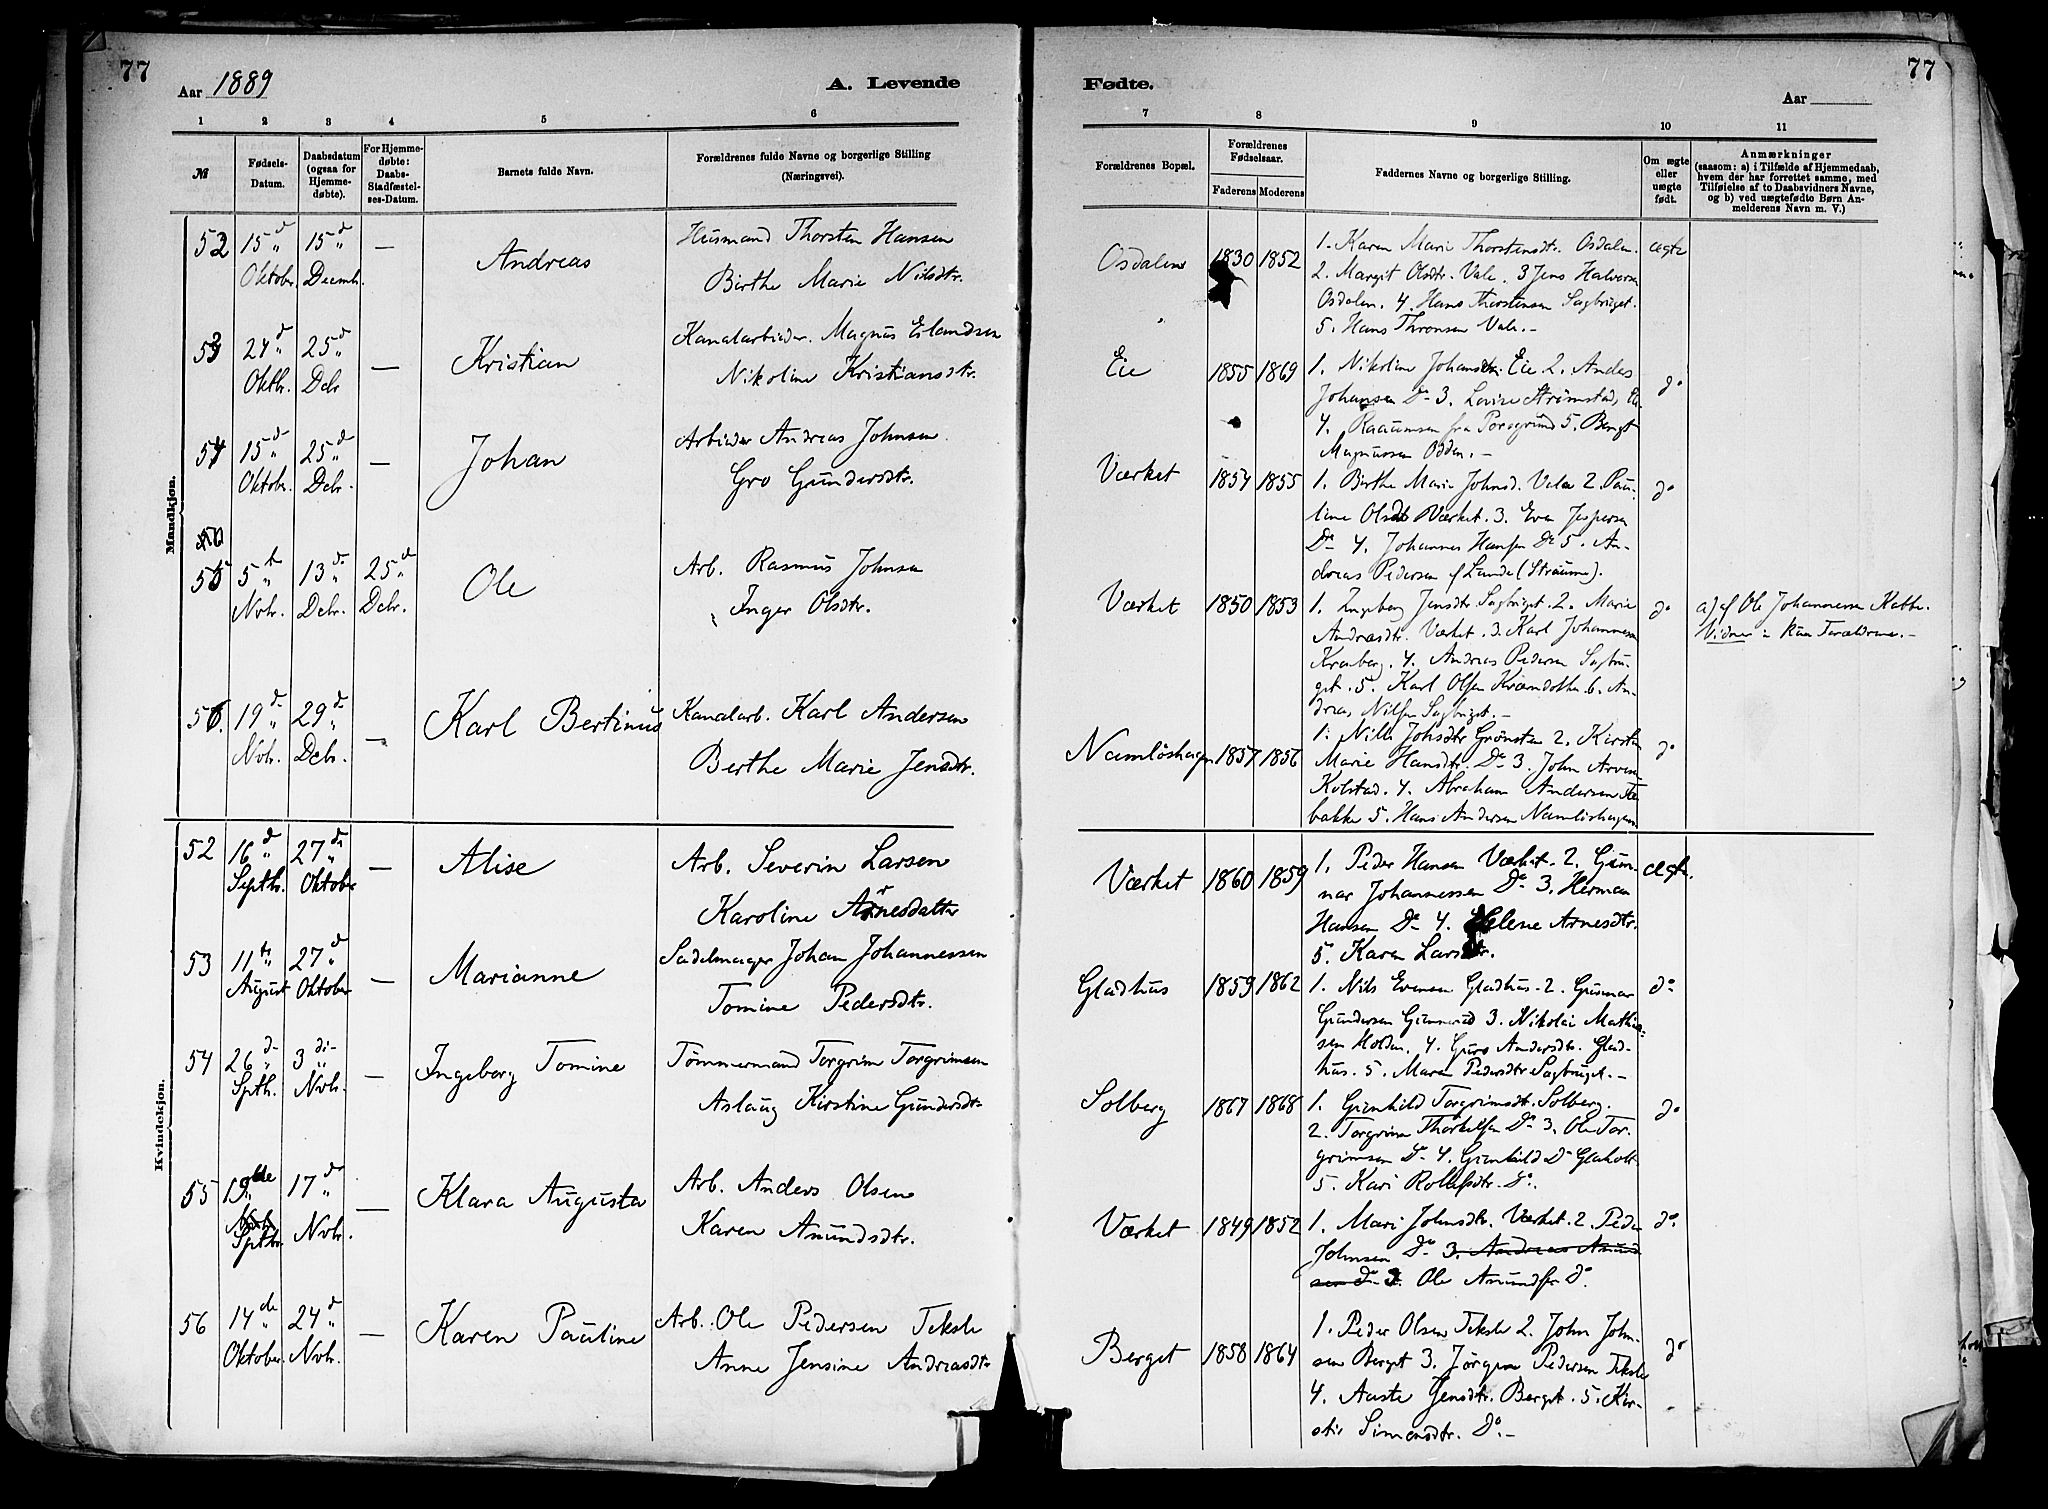 77
Aar 1889
A. Levende
1 2 3 4 5 6
№
Fødsels-Datum.
Daabsdatum (ogsaa for Hjemmedøbte).
For Hjemmedøbte: Daabs-Stadfæstelses-Datum.
Barnets fulde Navn.
Forældrenes fulde Navne og borgerlige Stilling (Næringsvei).
Mandkjøn.
52 15d Oktober. 15d Decmb. — Andreas
Husmand Thorsten Hansen
Birthe Marie Nilsdtr.
53 24d Oktbr. 25d Dcbr — Kristian
Kanalarbieder. Magnus Erlandsen
Nikoline Kristiansdtr.
54 15d Oktober. 25d Dcbr. — Johan
Arbieder Andreas Johnsen
Gro Gundersdtr.
55 5t Nvbr. 13d Dcbr. 25d Dcbr. Ole
Arb. Rasmus Johnsen
Inger Olsdtr.
56. 19d Nvbr. 29d Dcbr. — Karl Bertinius
Kanalarb. Karl Andersen
Berthe Marie Jensdtr.
Kvindekjøn.
52 16d Septbr. 27d Oktober — Alise
Arb. Severin Larsen
Karoline Arnesdatter
53 11te August 27d Oktober — Marianne
Sadelmager Johan Johannessen
Tomine Pedersdtr.
54 26d Sptbr. 3di Nvbr. — Ingeborg Tomine
Tømmermand Torgrim Torgrimsen
Aslaug Kirstine Gundersdtr
55 19de Sptbr. 17d Nvbr. — Klara Augusta
Arb. Anders Olsen
Karen Amundsdtr.
56 14de Oktober. 24d Nvbr. — Karen Pauline
Arb. Ole Pedersen Teksle
Anne Jensine Andreasdtr
77
Fødte.
Aar
7 8 9 10 11
Forældrenes Bopæl.
Forældrenes Fødselsaar.
Faderens Moderens
Faddernes Navne og borgerlige Stilling.
Om ægte eller uægte født.
Anmærkninger
(saasom: a) i Tilfælde af Hjemmedaab, hvem der har forrettet samme, med Tilføielse af to Daabsvidners Navne, og b) ved uægtefødte Børn Anmelderens Navn m. V.)
Osdalen 1830 1852 ægte
1. Karen Marie Thorstensdtr. Osdalen.
2. Margit Olsdtr. Vale. 3 Jens Halvorsen
Osdalen. 4. Hans Thorstensen Sagbruget.
5. Hans Thronsen Vale.—
Eie 1855 1869 do
1. Nikoline Johansdtr. Eie 2. Anders
Johansen Do 3. Lovise Strömstad,
4. fra Porsgrund 5. Bengt
Magnussen Osden.—
Værket 1854 1855 do
1. Birthe Marie Johnsd. Vale 2. Pau-
line Olsdtr Værket. 3. Even Jespersen
Do 4. Johannes Hansen Do 5. An-
dreas Pedersen af Lunde (Straume).
Værket 1850 1853 do
1. Ingeborg Jensdtr Sagbruget. 2. Marie
Andreasdtr. Værket. 3. Karl Johannessen
4. Andreas Pedersen Sagbru-
get. 5. Karl Olsen 6. An-
dreas Nilsen Sagbruget.—
a) af Ole Johannessen
Vidner: Forældrene.—
Namløshagen 1857 1856 do
1. Nille Johsdtr Grønsten 2. Kirsten
Marie Hansdtr. Do 3. John
Kolstad. 4. Abraham Andersen
bakke 5. Hans Andersen Namløshagen
Værket 1860 1859 ægte.
1. Peder Hansen Værket. 2. Gun-
nar Johannessen Do 3. Herman
Hansen Do 4. Helene Arnesdtr.
5. Karen Larsdtr.
Gladhus 1859 1862 do
1. Nils Evensen Gladhus. 2. Gunnar
Gundersen Gunnerud 3. Nikolai Mathie-
sen Holden. 4. Guro Andersdtr. Glad-
hus. 5. Maren Pedersdtr Sagbruget.—
Solberg 1867 1868 do
1. Gunhild Torgrimsdtr. Solberg.
2. Torgrim Thorkelsen Do 3. Ole Tor-
grimsen Do 4. Gunhild Do
5. Kari Rolefsdtr. Do.
Værket 1849 1852 do
1. Mari Johnsdtr. Værket. 2. Peder
Johnsen Do 3. Andreas Amund-
sen Do 3. Ole Amundsen Do
Berget 1858 1864 do
1. Peder Olsen Teksle 2. John John-
sen Berget 3. Jørgen Pedersen Teksle
4. Aaste Jensdtr. Berget. 5. Kir-
sti Simonsdtr. Do.—